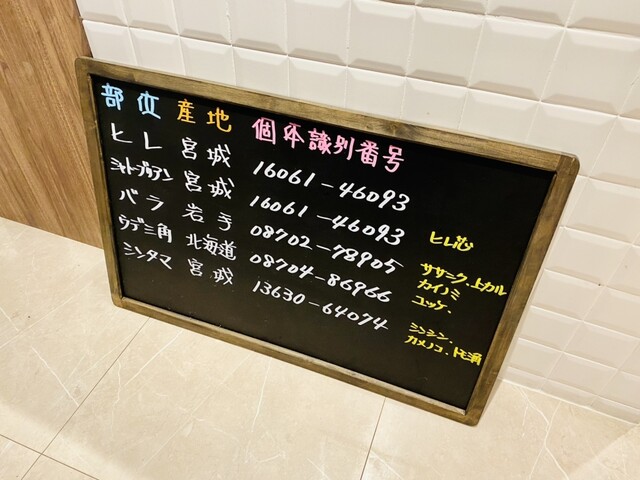 部位 産地 個体識別番号
ヒレ 宮城 16061-46093
シャトーブリアン 宮城 16061-46093 ヒレ芯
バラ 岩手 08702-78905 ササニク、上カル
カイノミ
ウデ三角 北海道 08704-86966 ユッケ、
シンタマ 宮城 13630-64074 シンシン、
カメノコ、トモ三角